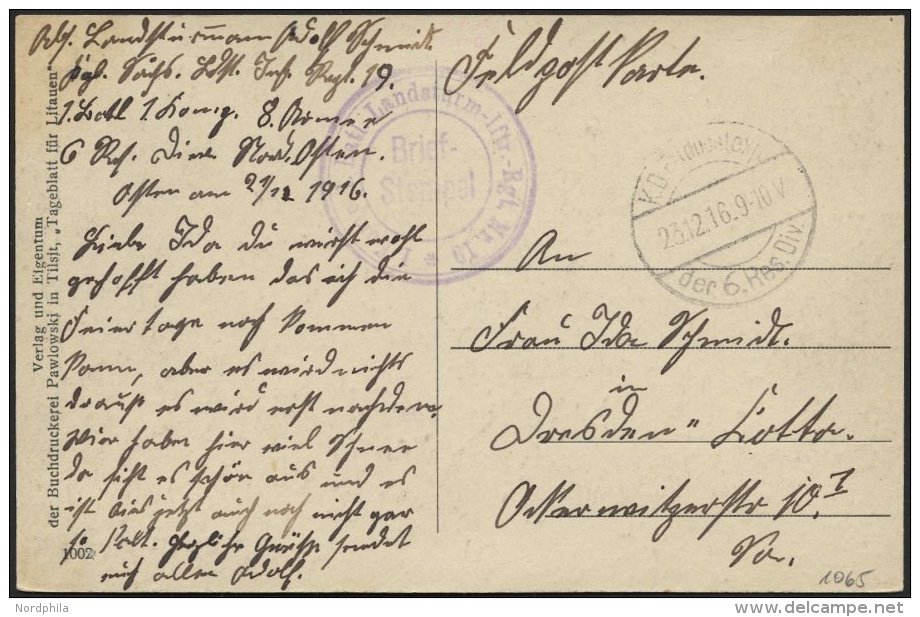 Abs. Landsturmann Adolf Schmidt.
Kgl. Sächs. Ldst. Inf. Regt. 19.
1. Batl 1. Komp. 8. Armee
6 Res. Div. Nord. Osten.
Osten am 21/12 1916.
Liebe Ida du wirst wohl
gehofft haben das ich die
Feiertage noch kommen
kann, aber es wird nichts
drauß es wird erst nachdem.
Wir haben hier viel Schnee
da sieht es schön aus und es
ist bis jetzt auch noch nicht gar
so kalt. Herzliche Grüße sendet
euch allen Adolf.
Feldpost Karte.
An
Frau Ida Schmidt.
in
Dresden " Cotta.
Ockerwitzerstr 10. I
Sa.
Landsturm-Iftr.-Rgt. Nr. 19 *
Brief-
Stempel
K.D.
23.12.16.9-10V.
der 6. Res. Div.
Verlag und Eigentum
der Buchdruckerei Pawlowski in Tilsit, „Tageblatt für Litauen"
1002
1065
Nordphila
delcampe.net